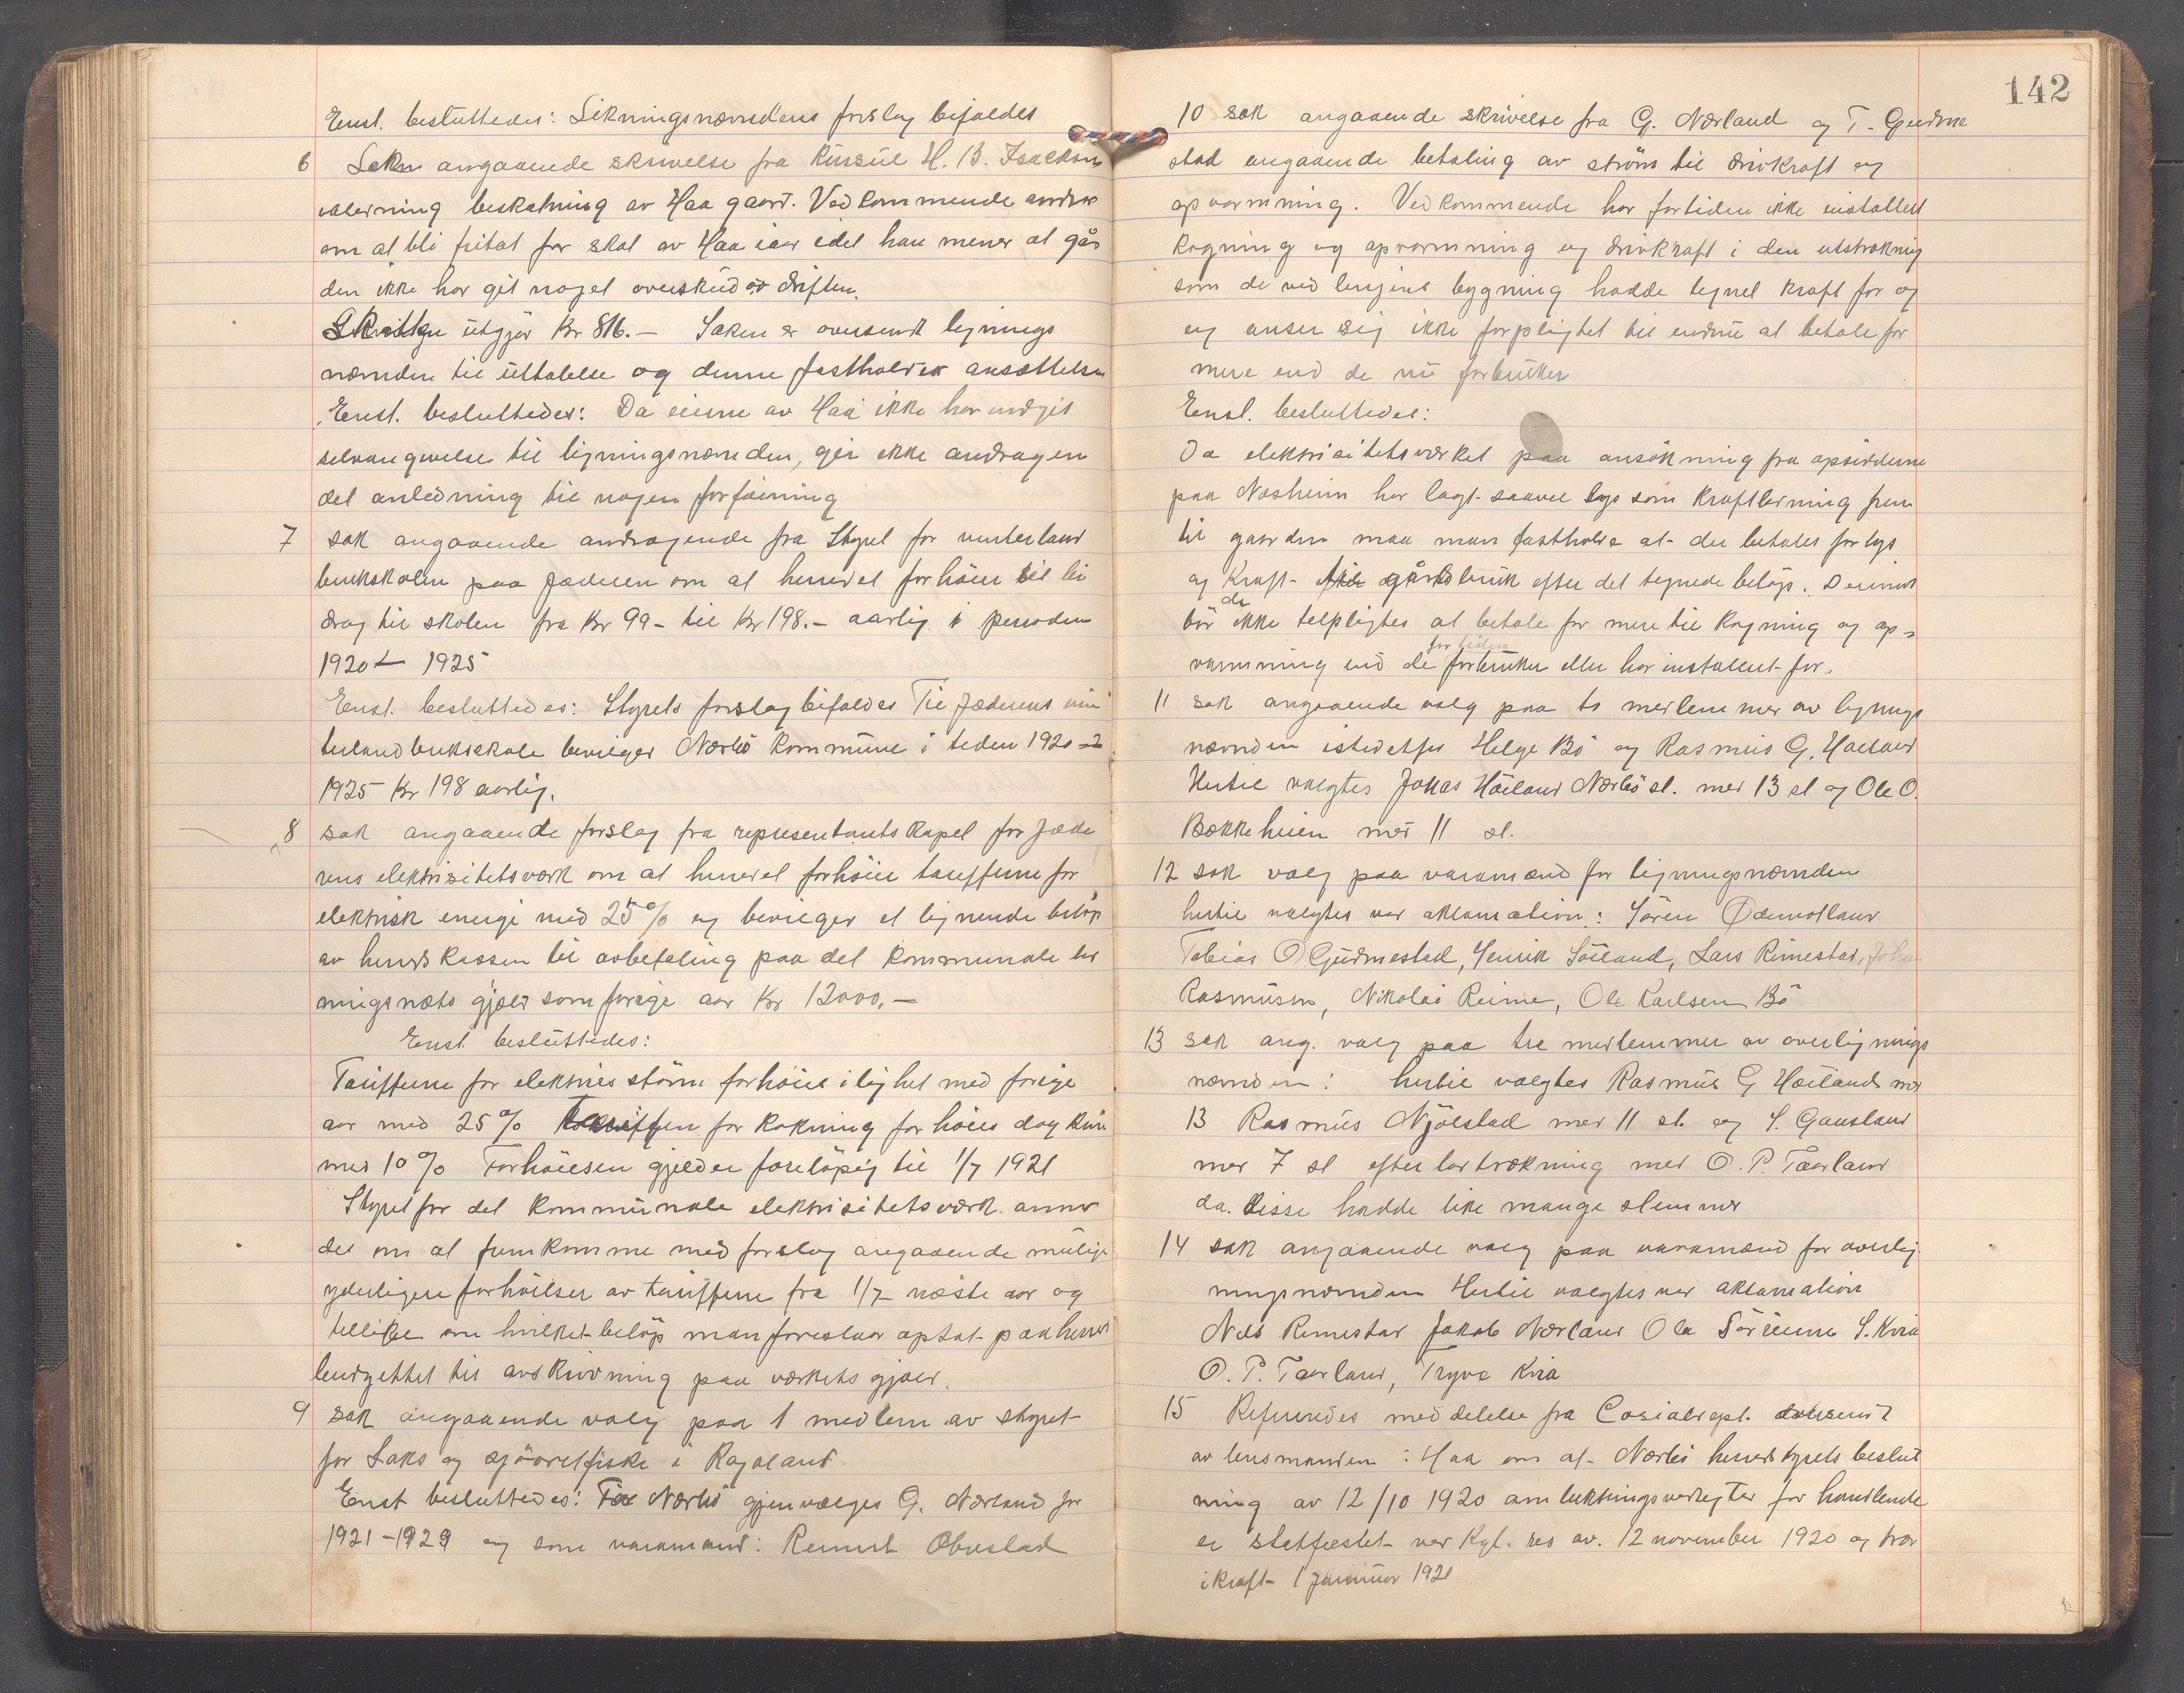 Enst. besluttedes: Likningsnævndens forslag bifaldes
6 Saken angaaende skrivelse fra Kunsul H. B. Isaksen
vedrørning beskatning av Haa gaard. Vedkommende andrar
om at bli fritat for skat av Haa iaar idet han mener at går
den ikke har git noget overskud av driften.
Skatten utgjør Kr 816.- Saken er oversendt lignings
nævnden til uttalelse og denne fastholder ansættelsen
Enst. besluttedes: Da eierne av Haa ikke har indgit
selvangivelse til ligningsnævnden, gir ikke andragen
det anledning til nogen forføining
7 sak angaaende andragende fra Styret for vinterland
bruksskolen paa Jæderen om at herredet forhøier sit bi
drag til skolen fra Kr 99- til Kr 198.- aarlig i perioden
1920 - 1925
Enst. besluttedes: Styrets forslag bifaldes Til Jæderens vin
terlandbruksskole bevilges Nærbø kommune i tiden 1920-
1925 Kr 198 aarlig.
8 sak angaaende forslag fra representantskapet for Jæde
rens elektrisitetsverk om at herredet forhøier tarifferne for
elektrisk energi med 25% og bevilger et lignende beløp
av herredskassen til avbetaling paa det kommunale led
ningsnets gjæld som forrige aar Kr 12000,-
Enst. besluttedes:
Tarifferne for elektrisk strøm forhøies i lighet med forrige
aar med 25% Tariffen for kokning forhøies dog kun
med 10% Forhøielsen gjelder foreløpig til 1/7 1921
Styret for det kommunale elektrisitetsværk anmo
des om at fremkomme med forslag angaaende mulige
yderligere forhøielser av tarifferne fra 1/7 næste aar og
tillike om hvilket beløp man foreslaar optat paa herreds
budgettet til avskrivning paa værkets gjæld.
9 sak angaaende valg paa 1 medlem av styret
for Laks og sjøørretfiske i Rogaland
Enst besluttedes: For Nærbø gjenvælges G. Nærland for
1921-1923 og som varamand: Reinert Obrestad
142
10 sak angaaende skrivelse fra G. Nærland og T. Gudme
stad angaaende betaling av strøm til drivkraft og
opvarmning. Vedkommende har fortiden ikke installert
kogning og opvarmning og drivkraft i den utstrækning
som de ved linjens bygning hadde tegnet kraft for og
og anser sig ikke forpligtet til endnu at betale for
mere end de nu forbruker
Enst. besluttedes:
Da elektrisitetsværket paa ansøkning fra opsidderne
paa Næsheim har lagt saavel lys som kraftledning frem
til gaarden maa man fastholde at der betales for lys
og kraft til gårdsbruk efter det tegnede beløp. Derimot
bør de ikke tilpligtes at betale for mere til kogning og op-
varmning end de fortiden forbruker eller har installert for.
11 sak angaaende valg paa to medlemmer av lignings
nævnden istedetfor Helge Bø og Rasmus G. Høiland
Hertil valgtes Jonas Høiland Nærbø st. med 13 st og Ole O.
Bækkeheien med 11 st.
12 sak valg paa varamænd for ligningsnævnden
hertil valgtes ved aklamation: Søren Ødemotland
Tobias O Gudmestad, Henrik Søiland, Lars Rimestad, Johan
Rasmusen, Nikolai Reime, Ole Karlsen Bø
13 sak ang. valg paa tre medlemmer av overlignings
nævnden: hertil valgtes Rasmus G Høiland med
13 Rasmus Njølstad med 11 st. og S. Gausland
med 7 st efter lodtrækning med O. P. Taarland
da disse hadde like mange stemmer
14 sak angaaende valg paa varamænd for overlig
ningsnævnden Hertil valgtes ved aklamation
Nils Rimestad Jakob Nærland Ole Sørheim S. Kvia
O. P. Taarland, Trygve Kvia
15 Refereredes meddelelse fra Cosialdept. oversendt
av lensmanden i Haa om at Nærbø herredstyrets beslut
ning av 12/10 1920 om lukningsvedtegter for handlende
er statfæstet ved Kgl. res av. 12 november 1920 og trær
i kraft 1 Januuar 1921